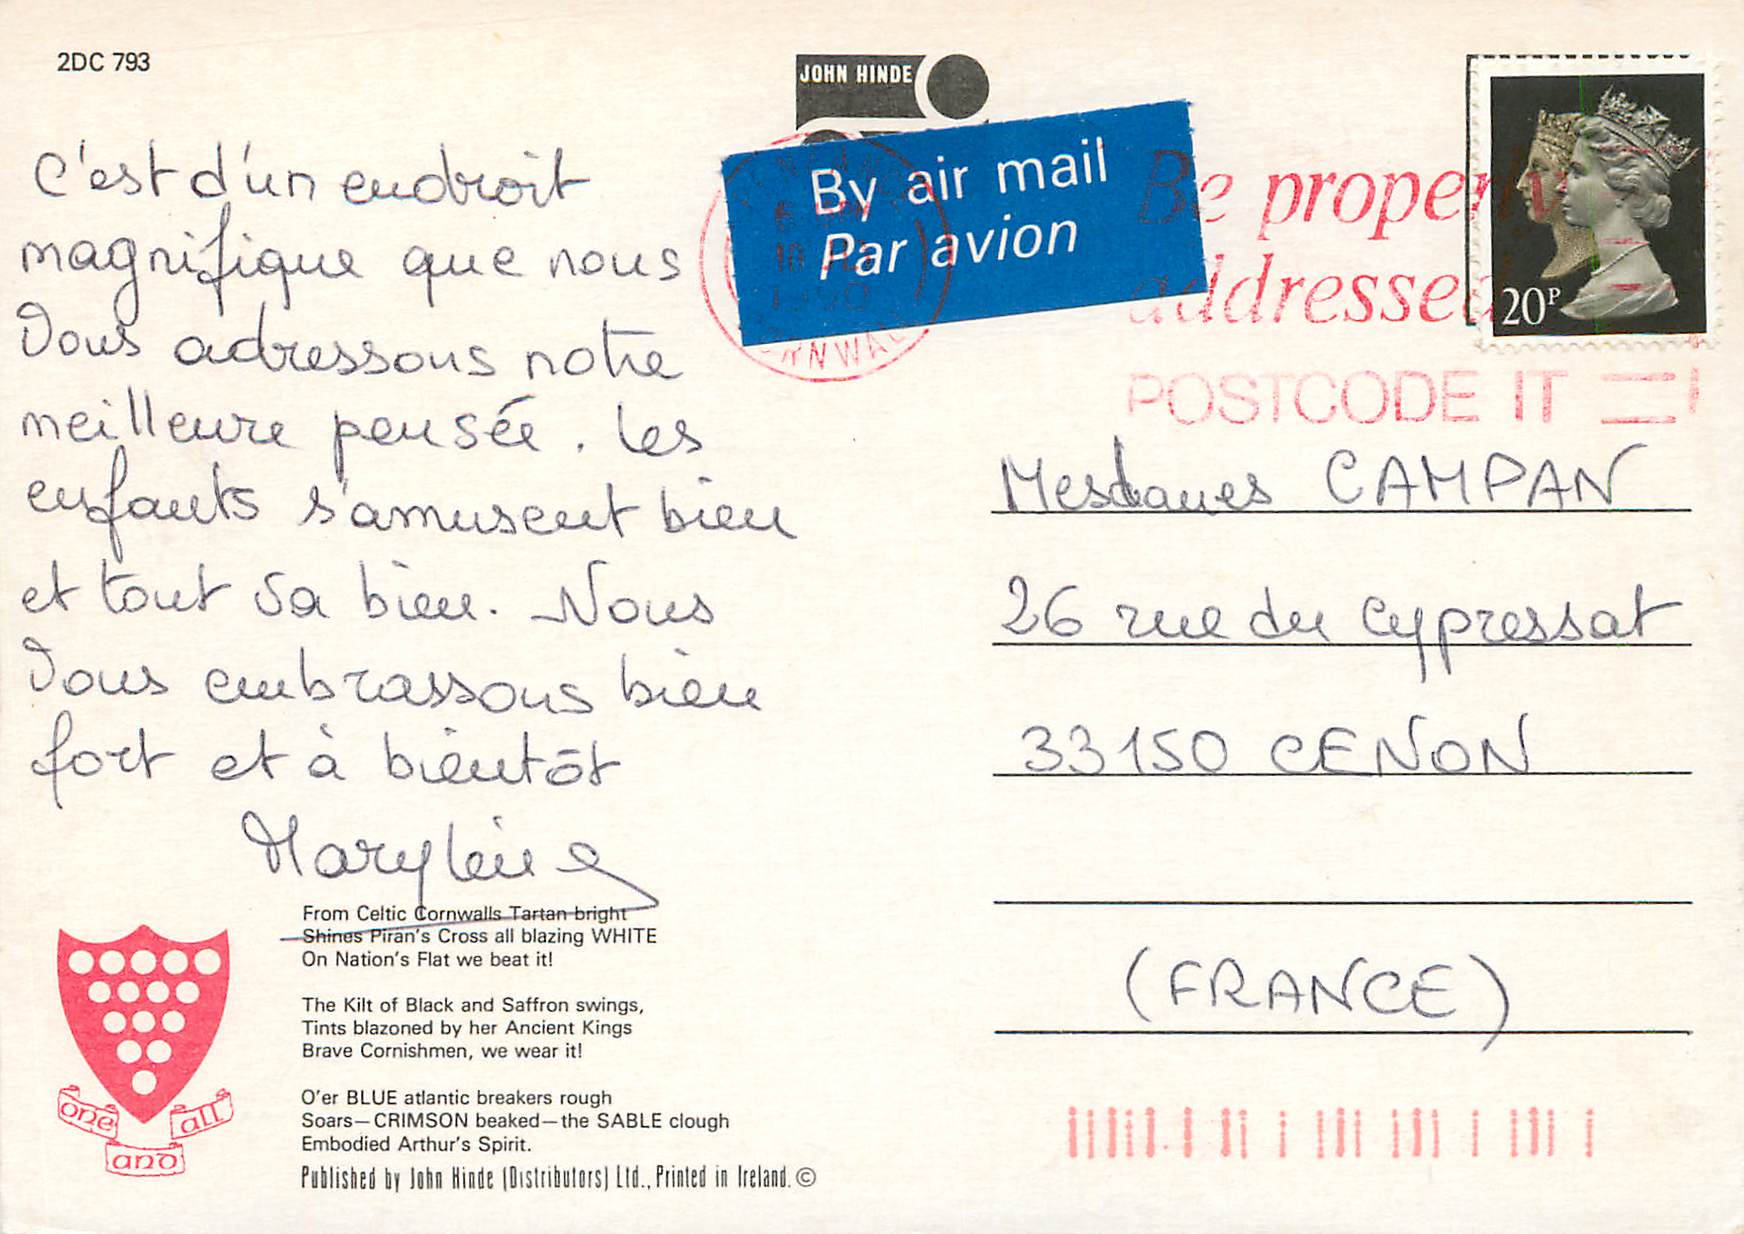 2DC 793
JOHN HINDE
By air mail
Par avion
1990
Be properly
addressed
POSTCODE IT
20P
C'est d'un endroit
magnifique que nous
Vous adressons notre
meilleure pensée. Les
enfants s'amusent bien
et tout va bien. Nous
Vous embrassons bien
fort et à bientôt
Maryleine
Mesdames CAMPAN
26 rue du Cypressat
33150 CENON
(FRANCE)
From Celtic Cornwalls Tartan bright
Shines Piran's Cross all blazing WHITE
On Nation's Flat we beat it!
The Kilt of Black and Saffron swings,
Tints blazoned by her Ancient Kings
Brave Cornishmen, we wear it!
O'er BLUE atlantic breakers rough
Soars—CRIMSON beaked—the SABLE clough
Embodied Arthur's Spirit.
Published by John Hinde (Distributors) Ltd., Printed in Ireland. ©
one and all